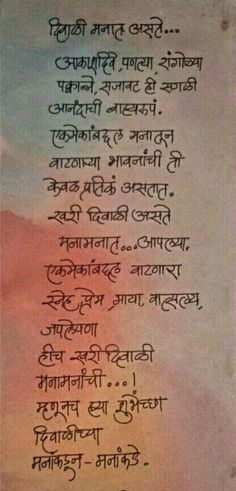 दिवाळी मनात असते...
आकाशदिवे, पणत्या, रांगोळ्या
पक्वान्ने, सजावट ही सगळी
आनंदाची बाह्यरूपं.
एकमेकांबद्दल मनातून
वाटणाऱ्या भावनांची ती
केवळ प्रतिकं असतात.
खरी दिवाळी असते
मनामनात...आपल्या.
एकमेकांबद्दल वाटणारा
स्नेह, प्रेम, माया, वात्सल्य,
जपलेपणा
हीच खरी दिवाळी
मनामनांची...!
म्हणूनच ह्या शुभेच्छा
दिवाळीच्या
मनाकडून - मनाकडे.